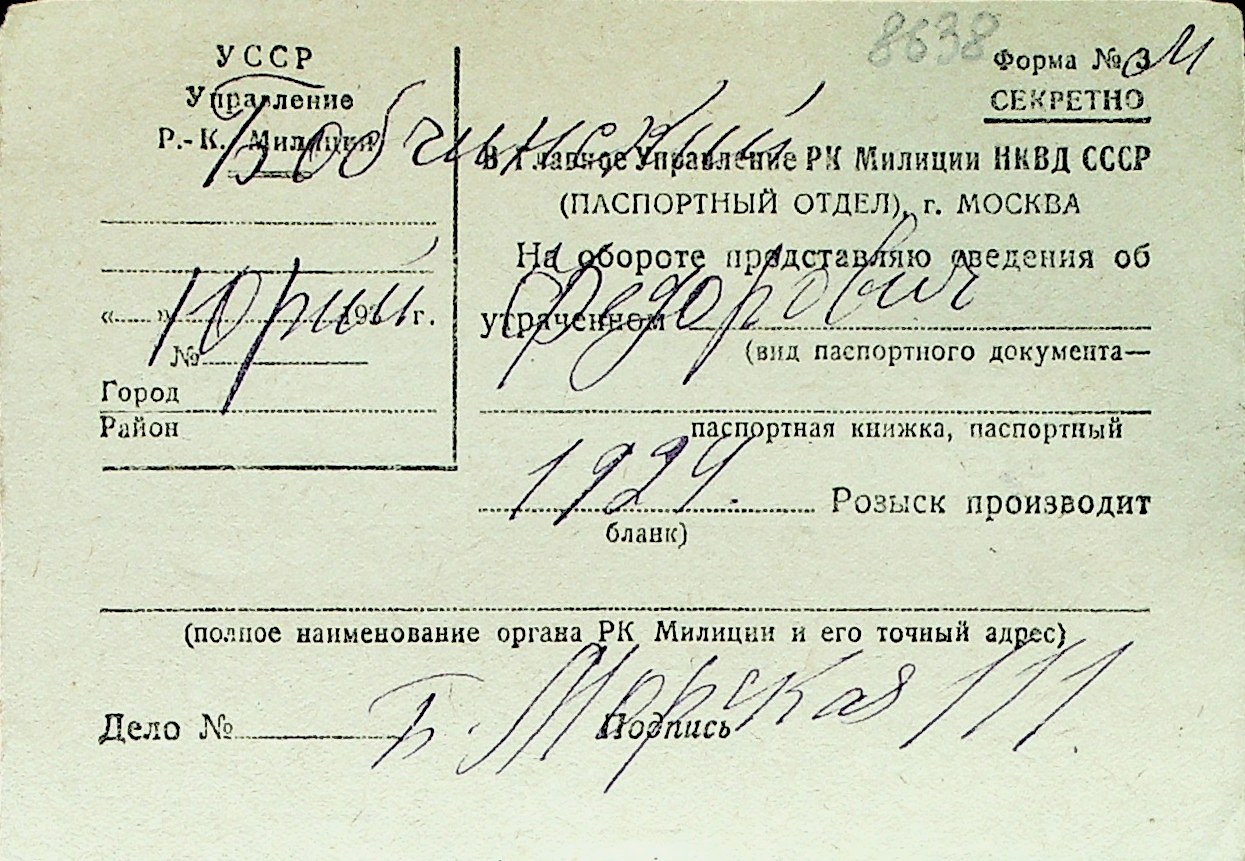 8638
УССР
Управление
Р.-К. Милиции
Форма № 3
СЕКРЕТНО
Бобчинский
В Главное Управление РК Милиции НКВД СССР
(ПАСПОРТНЫЙ ОТДЕЛ), г. МОСКВА
На обороте представляю сведения об
Юрий Федорович
«......» 193 г.
утраченном
№
(вид паспортного документа—
Город
Район
паспортная книжка, паспортный
1924.
Розыск производит
бланк)
(полное наименование органа РК Милиции и его точный адрес)
Б. Морская 111.
Дело №
Подпись